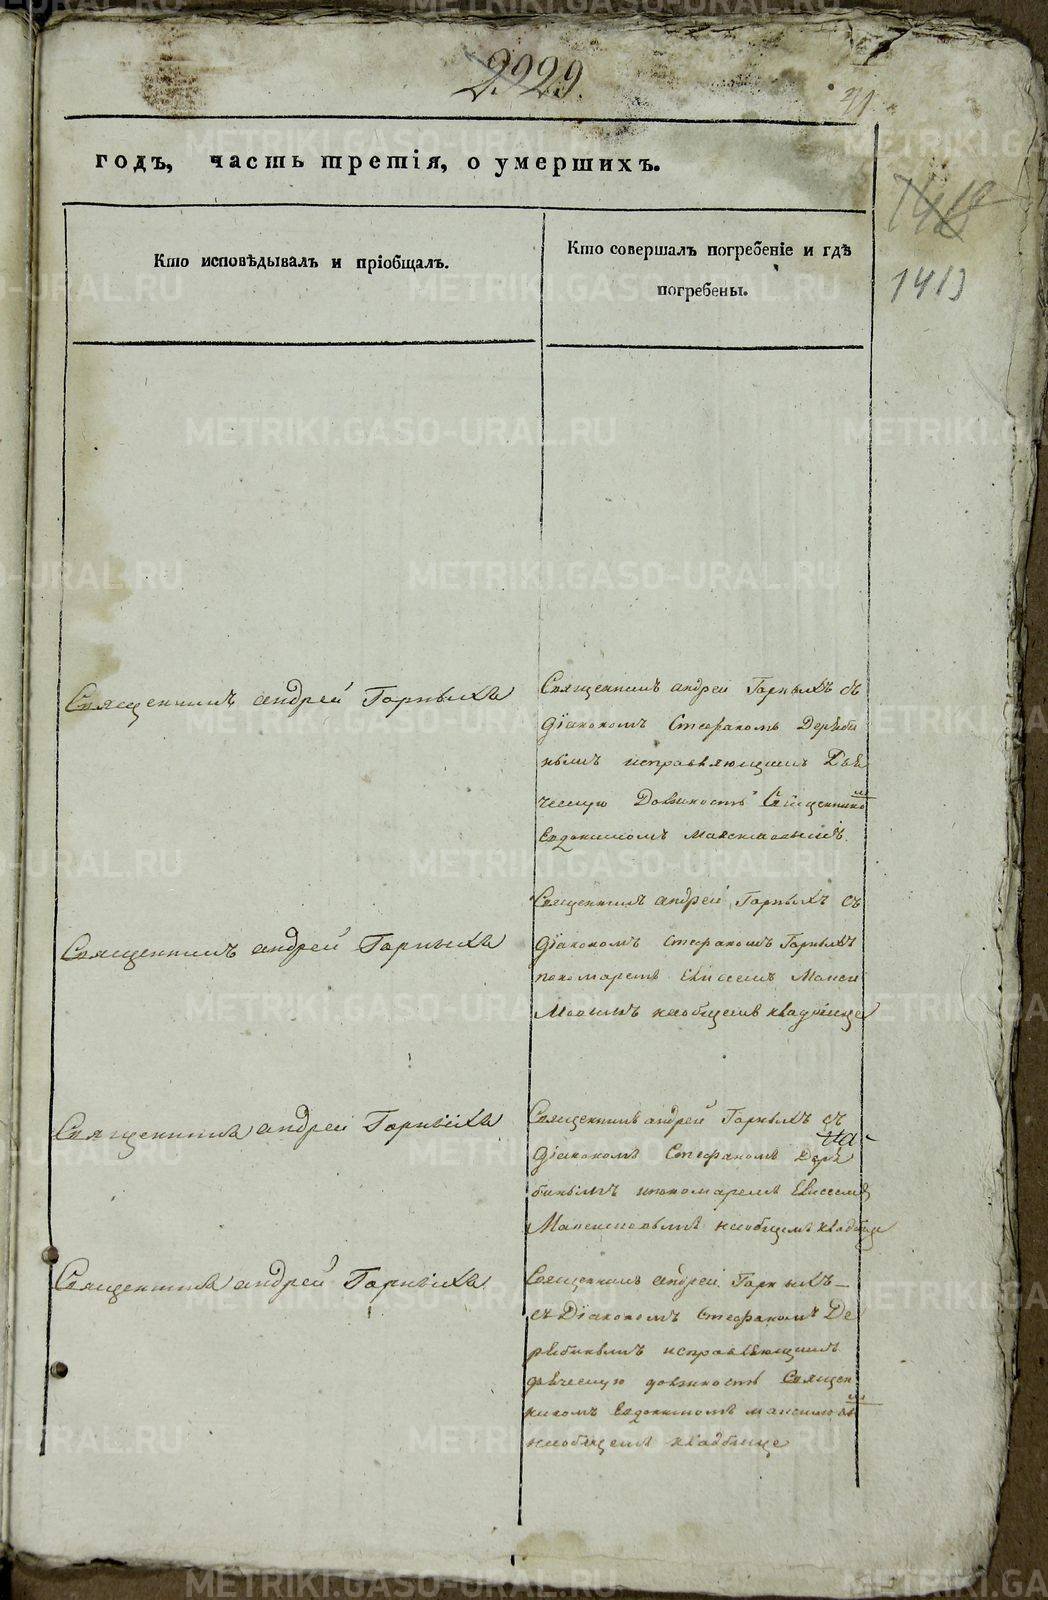 2929.
31
годъ, часть третія, о умершихъ.
1413
Кто исповѣдывалъ и пріобщалъ.
Кто совершалъ погребеніе и гдѣ
погребены.
Священникъ андрей Горныхъ
Священникъ андрей Горныхъ съ
діакономъ Стефаномъ Деряби
нымъ исправляющимъ Дья
ческую Должность Священнико
Евдокимомъ
Священникъ андрей Горныхъ
Священникъ андрей Горныхъ съ
діакономъ Стефаномъ Горныхъ
пономаремъ Елисеемъ Макси
мовымъ наобщемъ кладбище
Священникъ андрей Горныхъ
Священникъ андрей Горныхъ съ
діакономъ Стефаномъ Деря
бинымъ ипономаремъ Елисеемъ
Максимовымъ наобщемъ кладбище
Священникъ андрей Горныхъ
Священникъ андрей Горныхъ
съ Діакономъ Стефаномъ Де
рябинымъ исправляющимъ
дьяческую должность Священ
никомъ Евдокимомъ
наобщемъ кладбище
METRIKI.GASO-URAL.RU